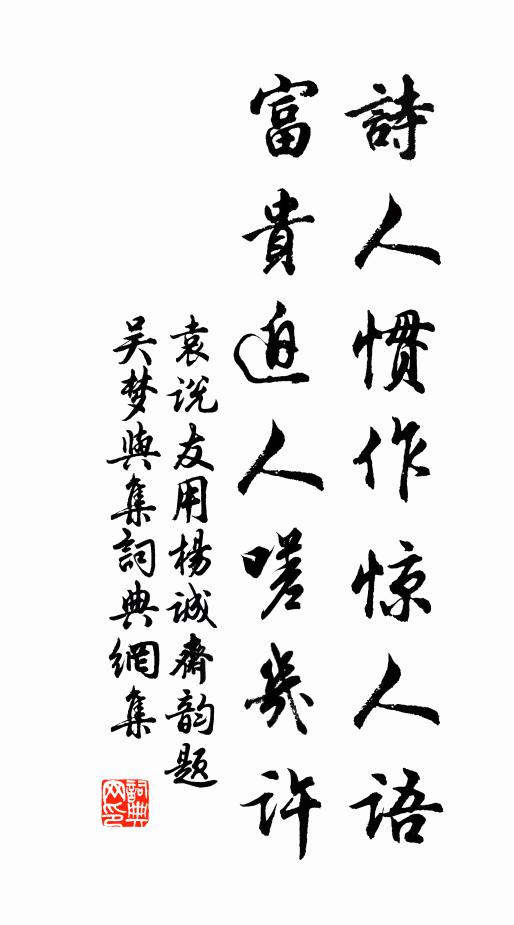 詩人惯作惊人语
富貴迫人嗟幾许
袁说友用楊诚齋韵题
吴梦與集詞典網集
詞典网印